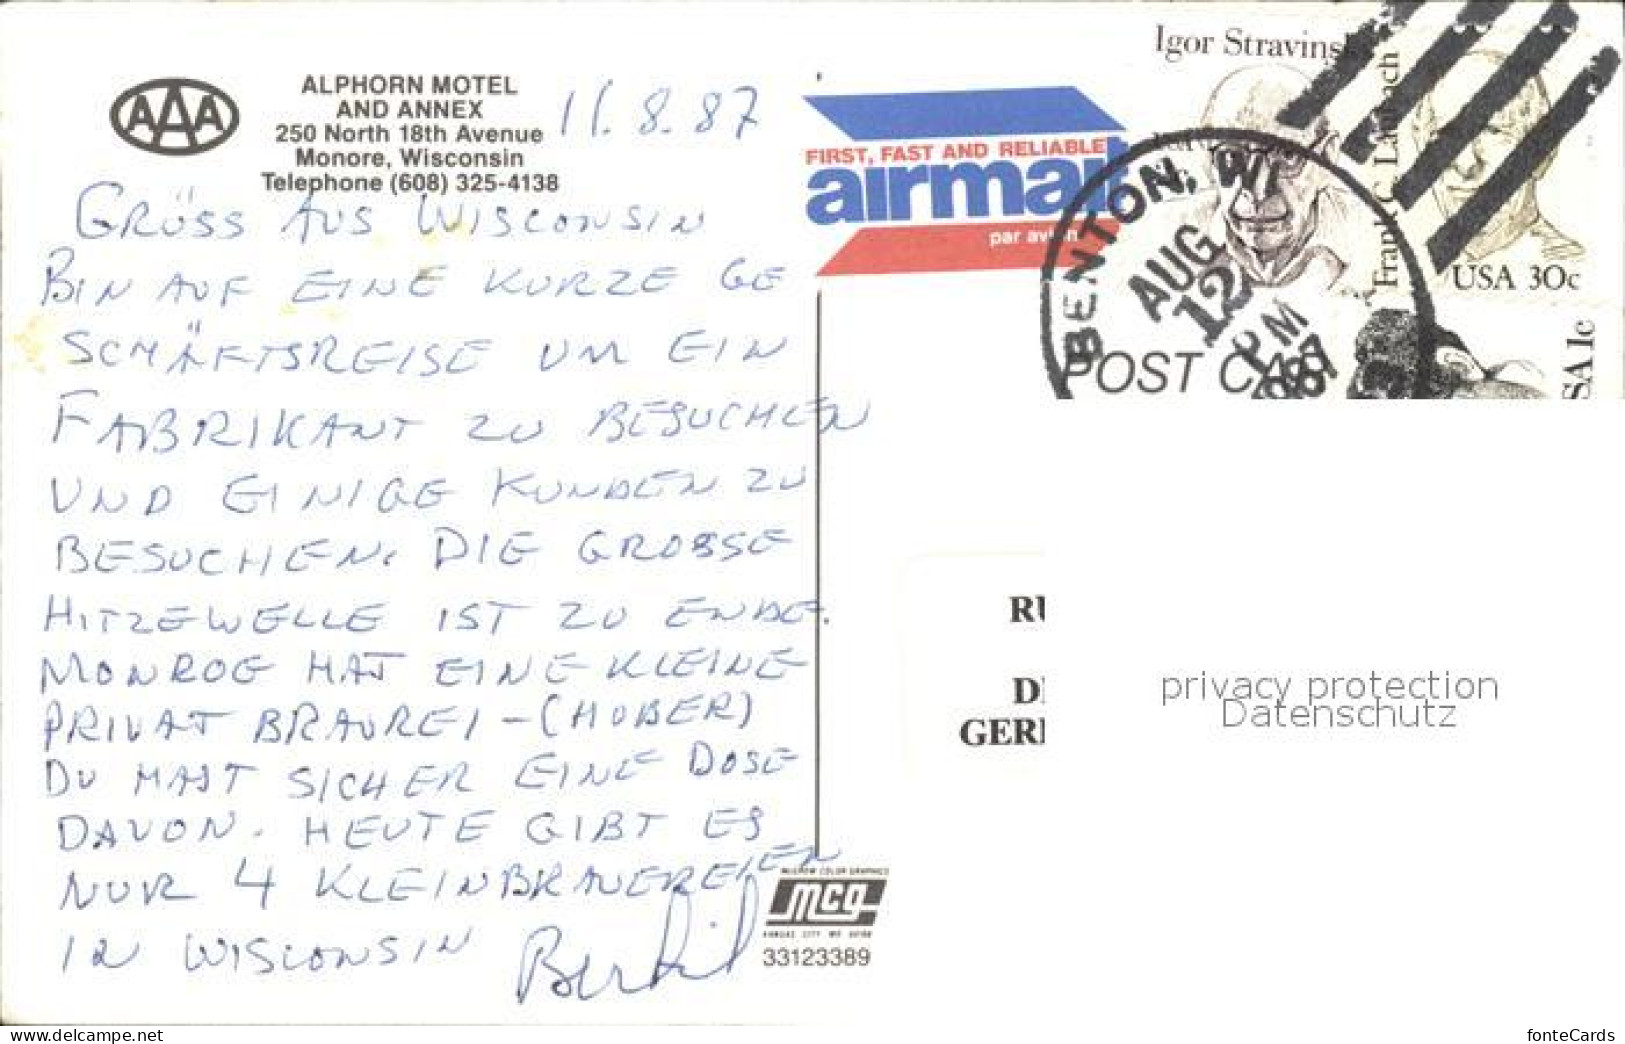 ALPHORN MOTEL
AND ANNEX
250 North 18th Avenue
Monore, Wisconsin
Telephone (608) 325-4138
AAA
11.8.87
GRÜSS AUS WISCONSIN
BIN AUF EINE KURZE GE
SCHÄFTSREISE UM EIN
FABRIKANT ZU BESUCHEN
UND EINIGE KUNDEN ZU
BESUCHEN. DIE GROSSE
HITZEWELLE IST ZU ENDE.
MONROE HAT EINE KLEINE
PRIVAT BRAUREI - (HUBER)
DU HAST SICHER EINE DOSE
DAVON. HEUTE GIBT ES
NUR 4 KLEINBRAUEREIEN
IN WISCONSIN
FIRST, FAST AND RELIABLE
airmail
par avion
Igor Stravins
Frank C. Laubach
USA 30c
SA 1c
BENTON, WI
AUG
12
PM
1987
POST CA
MCGREW COLOR GRAPHICS
mcg
KANSAS CITY MO
33123389
RU
D
GER
privacy protection
Datenschutz
www.delcampe.net
fonteCards